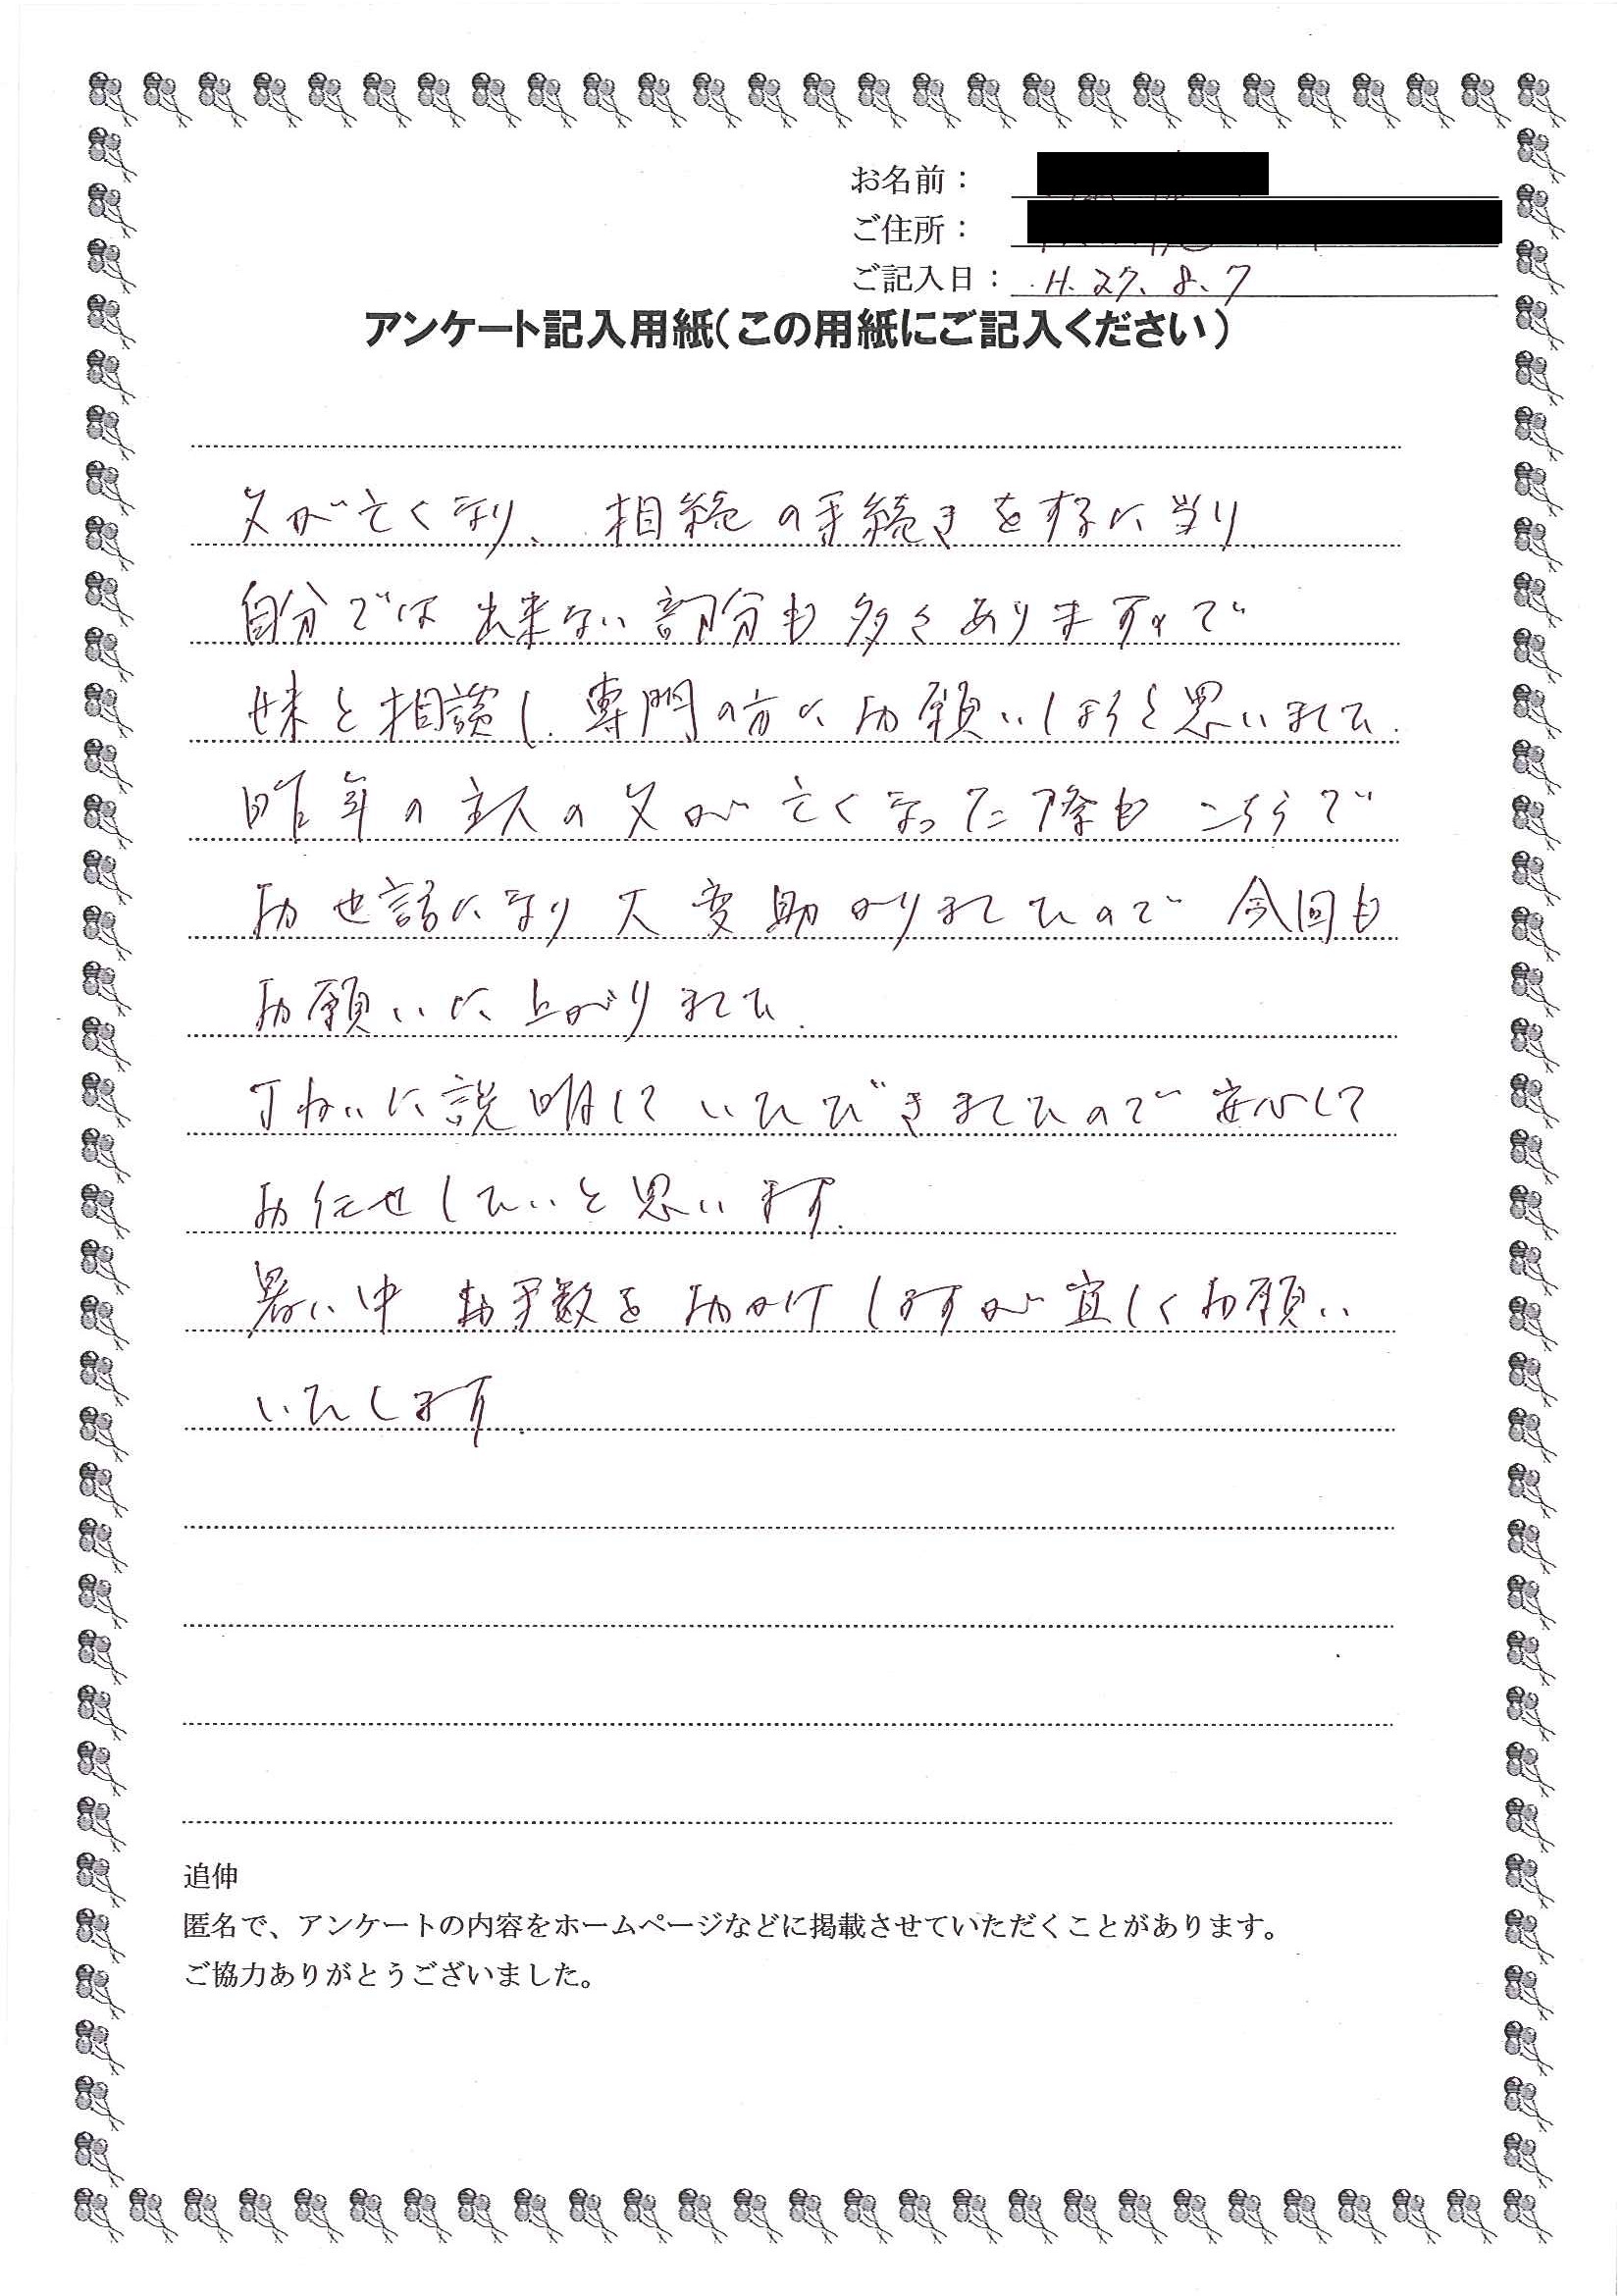 お名前：
ご住所：
ご記入日： H.27.8.7
アンケート記入用紙（この用紙にご記入ください）
父が亡くなり、相続の手続きをするに当り
自分では出来ない部分も多くありますので
妹と相談し、専門の方にお願いしようと思いました.
昨年の主人の父が亡くなった際も こちらで
お世話になり大変助かりましたので 今回も
お願いに上がりました.
丁ねいに説明していただきましたので安心して
お任せしたいと思います.
暑い中 お手数をおかけしますが宜しくお願い
いたします.
追伸
匿名で、アンケートの内容をホームページなどに掲載させていただくことがあります。
ご協力ありがとうございました。